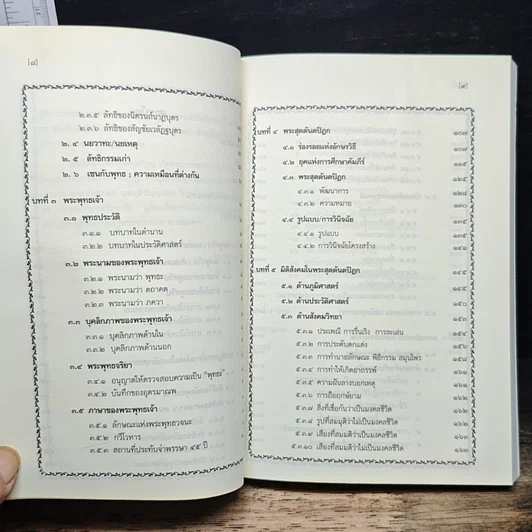 [๘]
๒.๓.๕ ลัทธิของนิครนถ์นาฏบุตร
๒.๓.๖ ลัทธิของสัญชัยเวลัฏฐบุตร
๒. ๔ นยวาทะ/นยเหตุ
๒. ๕ ลัทธิกรรมเก่า
๒. ๖ เชนกับพุทธ ; ความเหมือนที่ต่างกัน
บทที่ ๓ พระพุทธเจ้า
๓.๑ พุทธประวัติ
๓.๑.๑ บทบาทในตำนาน
๓.๒.๒ บทบาทในประวัติศาสตร์
๓.๒ พระนามของพระพุทธเจ้า
๓.๒.๑ พระนามว่า พุทธะ
๓.๒.๒ พระนามว่า ตถาคต
๓.๒.๓ พระนามว่า ภควา
๓.๓ บุคลิกภาพของพระพุทธเจ้า
๓.๓.๑ บุคลิกภาพด้านใน
๓.๓.๒ บุคลิกภาพด้านนอก
๓.๔ พระพุทธจริยา
๓.๔.๑ อนุญาตให้ตรวจสอบความเป็น "พุทธะ"
๓.๔.๒ บันทึกของอุตรมาณพ
๓.๕ ภาษาของพระพุทธเจ้า
๓.๕.๑ ลักษณะแห่งพระพุทธวจนะ
๓.๕.๒ กวีโวหาร
๓.๕.๓ สถานที่ประทับจำพรรษา ๔๕ ปี
[๙]
บทที่ ๔ พระสุตตันตปิฎก ๑๐๗
๔.๑ ร่องรอยแห่งอักษรวิธี ๑๐๗
๔.๒ ยุคแห่งการศึกษาคัมภีร์ ๑๑๕
๔.๓ พระสุตตันตปิฎก ๑๒๔
๔.๓.๑ พัฒนาการ
๔.๓.๒ ความหมาย
๔.๔ รูปแบบ/การวินิจฉัย ๑๓๕
๔.๔.๑ รูปแบบ ๑๓๕
๔.๔.๒ การวินิจฉัยโครงสร้าง
บทที่ ๕ มิติสังคมในพระสุตตันตปิฎก ๑๔๕
๕.๑ ด้านภูมิศาสตร์
๕.๒ ด้านประวัติศาสตร์
๕.๓ ด้านสังคมวิทยา
๕.๓.๑ ประเพณี การรื่นเริง การละเล่น
๕.๓.๒ การประดับตกแต่ง
๕.๓.๓ การทำนายลักษณะ พิธีกรรม สมุนไพร
๕.๓.๔ การทำให้เกิดอาถรรพ์
๕.๓.๕ ความฝันลางบอกเหตุ
๕.๓.๖ การถือฤกษ์ยาม
๕.๓.๗ สิ่งที่เชื่อกันว่าเป็นมงคลชีวิต ๑๖๒
๕.๓.๘ รูปที่สมมุติว่าไม่เป็นมงคลชีวิต ๑๖๒
๕.๓.๙ เสียงที่สมมติว่าเป็นมงคลชีวิต ๑๖๓
๕.๓.๙ เสียงที่สมมติว่าไม่เป็นมงคลชีวิต ๑๖๓